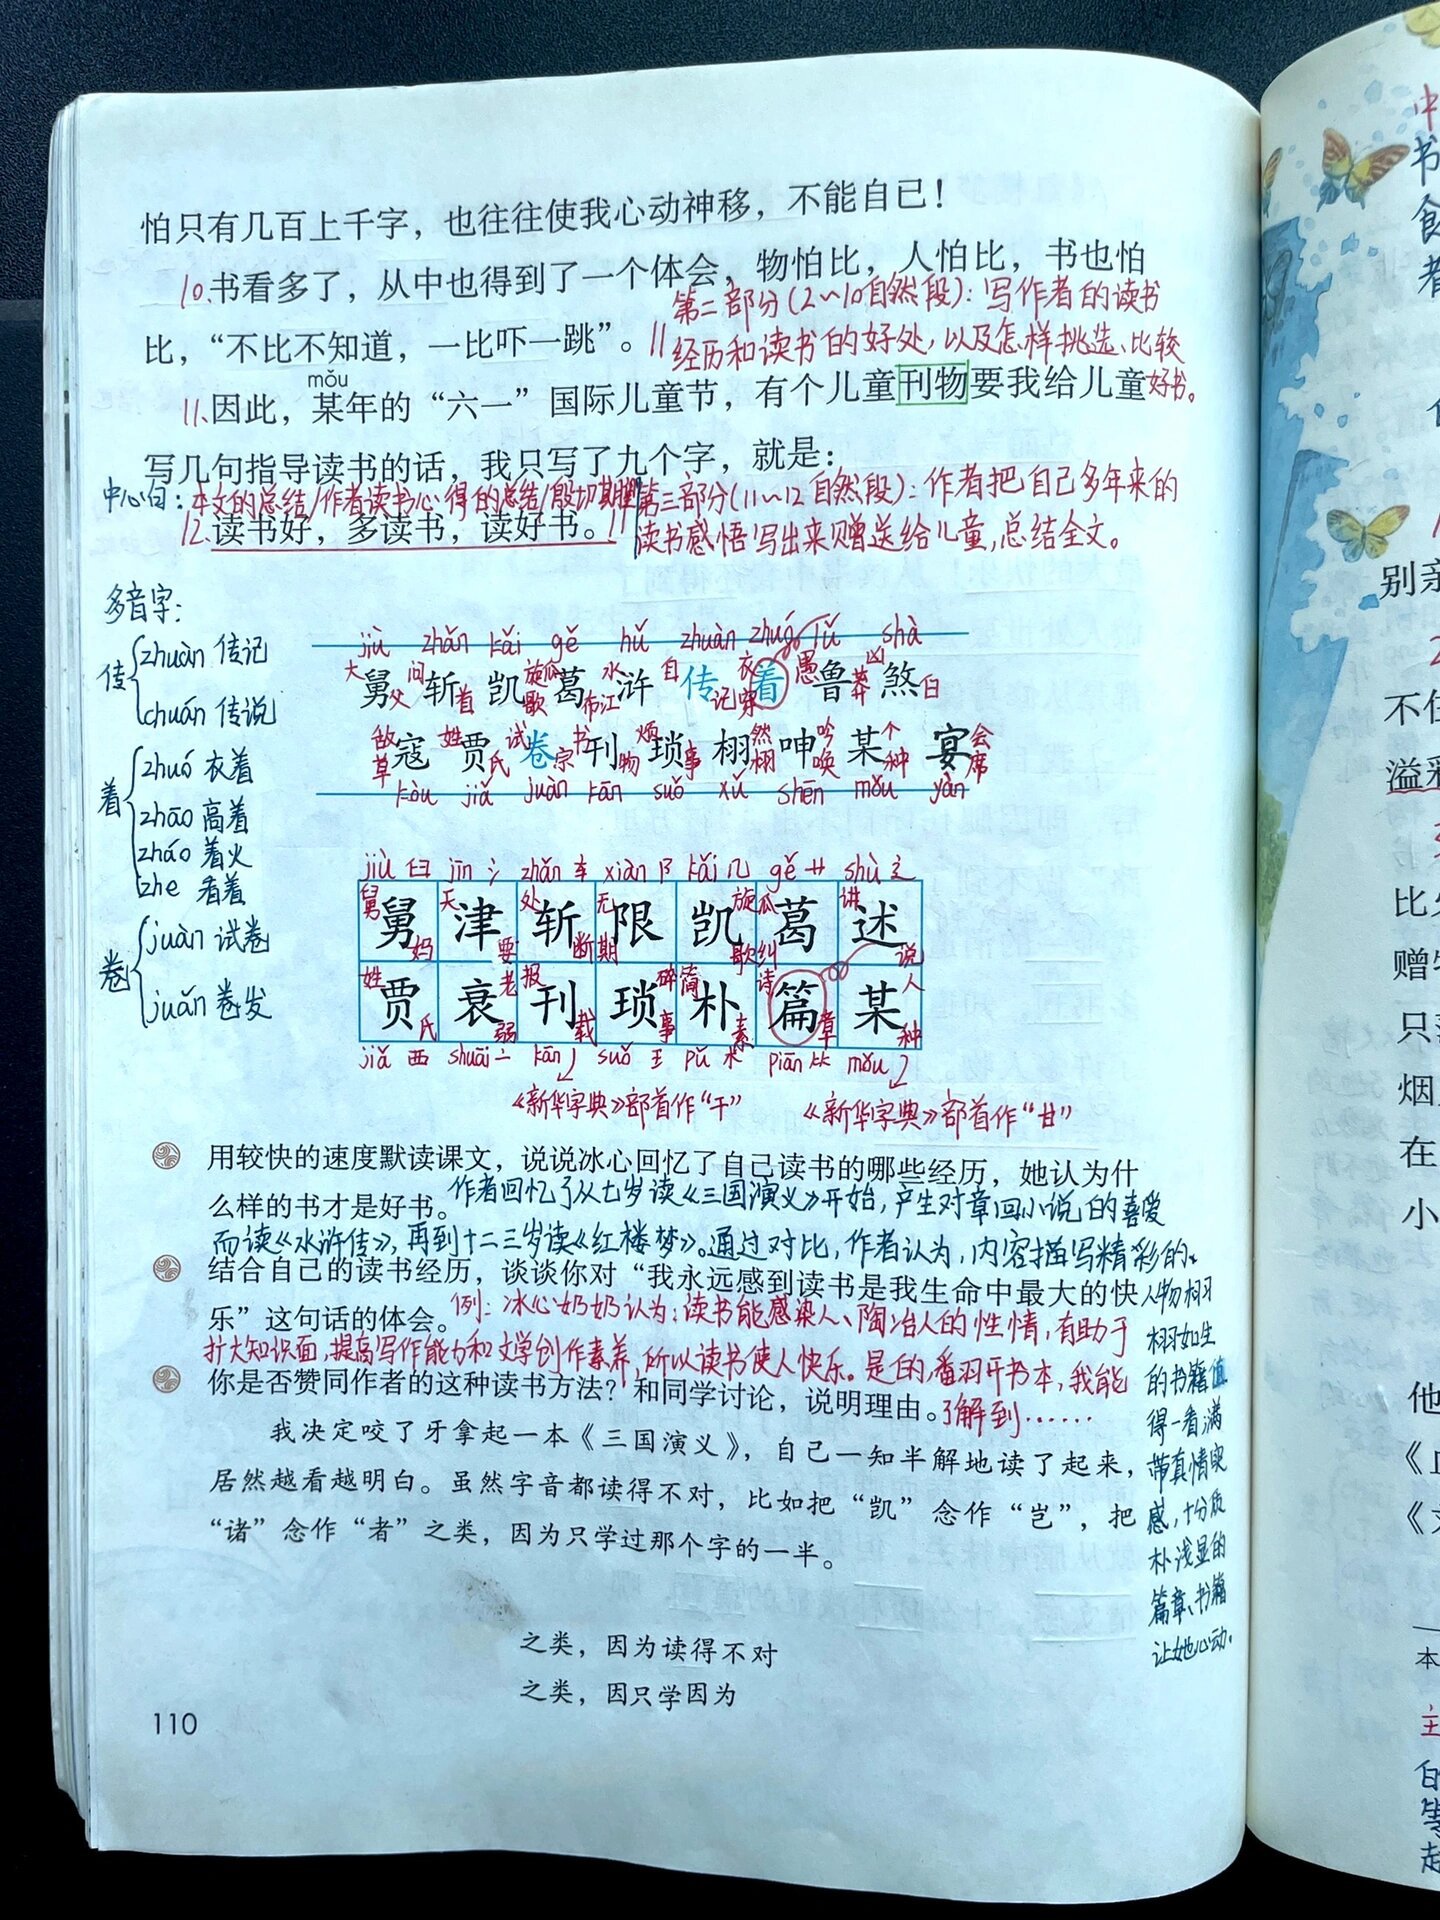 怕只有几百上千字，也往往使我心动神移，不能自已！
10.书看多了，从中也得到了一个体会，物怕比，人怕比，书也怕
比，“不比不知道，一比吓一跳”。
第二部分(2～10自然段)：写作者的读书
经历和读书的好处，以及怎样挑选、比较
好书。
mǒu
11.因此，某年的“六一”国际儿童节，有个儿童刊物要我给儿童
写几句指导读书的话，我只写了九个字，就是：
中心句：本文的总结/作者读书心得的总结/殷切期望
12.读书好，多读书，读好书。
第三部分(11～12自然段)：作者把自己多年来的
读书感悟写出来赠送给儿童，总结全文。
多音字：
传
zhuàn 传记
chuán 传说
着
zhuó 衣着
zhāo 高着
zháo 着火
zhe 看着
卷
juàn 试卷
juǎn 卷发
jiù zhǎn kǎi gě hǔ zhuàn zhuó lǔ shà
大舅父 问斩首 凯旋歌 葛瓜布 水浒江 自传记 衣着索 愚鲁莽 凶煞白
敌寇草 姓贾氏 试卷宗 书刊物 烦琐事 栩然栩 呻吟唤 某个种 宴会席
kòu jiǎ juàn kān suǒ xǔ shēn mǒu yàn
jiù 臼 jīn 氵 zhǎn 车 xiàn 阝 kǎi 几 gě 艹 shù 辶
舅 津 斩 限 凯 葛 述
舅妈 天要 处断 无期 旋歌 瓜纠 讲说
贾 衰 刊 琐 朴 篇 某
姓氏 老弱 报载 碎事 简素 诗章 人种
jiǎ 西 shuāi 亠 kān 刂 suǒ 王 pǔ 木 piān ⺮ mǒu
《新华字典》部首作“干”
《新华字典》部首作“甘”
用较快的速度默读课文，说说冰心回忆了自己读书的哪些经历，她认为什
么样的书才是好书。
作者回忆了从七岁读《三国演义》开始，产生对章回小说的喜爱
而读《水浒传》，再到十二三岁读《红楼梦》。通过对比，作者认为，内容描写精彩的、
人物栩
栩如生
的书籍值
得一看，满
带真情实
感，十分质
朴浅显的
篇章、书籍
让她心动。
结合自己的读书经历，谈谈你对“我永远感到读书是我生命中最大的快
乐”这句话的体会。
例：冰心奶奶认为：读书能感染人、陶冶人的性情，有助于
扩大知识面，提高写作能力和文学创作素养，所以读书使人快乐。是的，翻开书本，我能
了解到……
你是否赞同作者的这种读书方法？和同学讨论，说明理由。
我决定咬了牙拿起一本《三国演义》，自己一知半解地读了起来，
居然越看越明白。虽然字音都读得不对，比如把“凯”念作“岂”，把
“诸”念作“者”之类，因为只学过那个字的一半。
之类，因为读得不对
之类，因只学因为
110
书
食
别亲
不住
溢彩
比
赠
只
烟
在
小
他
本
主